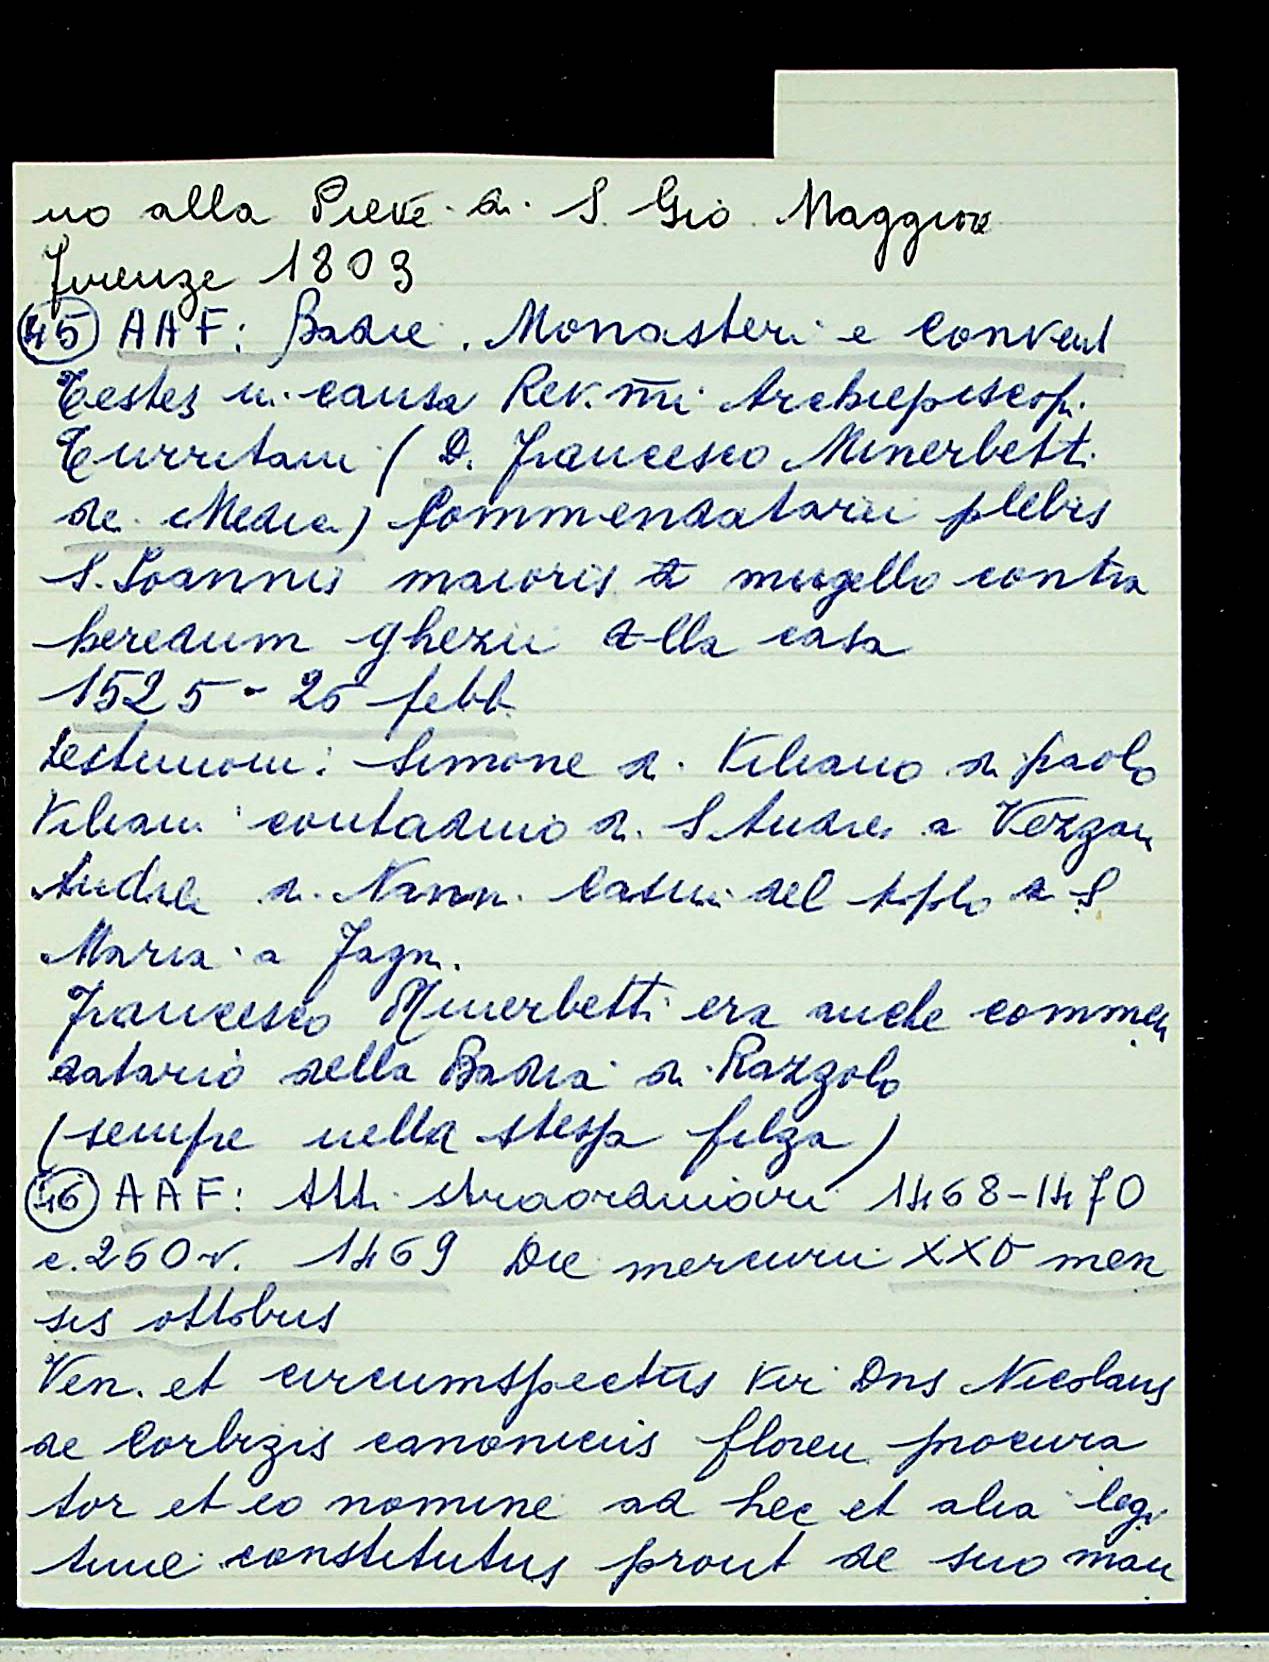 no alla Pieve di S. Gio Maggiore
Firenze 1803
45 AAF: Badie. Monasteri e Conventi
Testes in causa Rev.mi Archiepiscopi
Turritani (D. Francesco Minerbetti
de Medici) Commendatarii plebis
S. Joannis maioris de mugello contra
heredum ghezii della casa
1525 - 26 febb.
testimoni: Simone di Viliano di paolo
Viliani contadino di S Andrea a Vezzan
Andrea di Nanni Casini del poplo di S
Maria a Fagn.
Francesco Minerbetti era anche commen
datario della Badia di Razzolo
(sempre nella stessa filza)
46 AAF: Atti straordinari 1468-1470
c. 260 v. 1469 Die mercurii XXV men
sis ottobris
Ven. et circumspectus vir Dns Nicolaus
de Corbizis canonicus floren procura
tor et eo nomine ad hec et alia legi
time constitutus prout de suo man